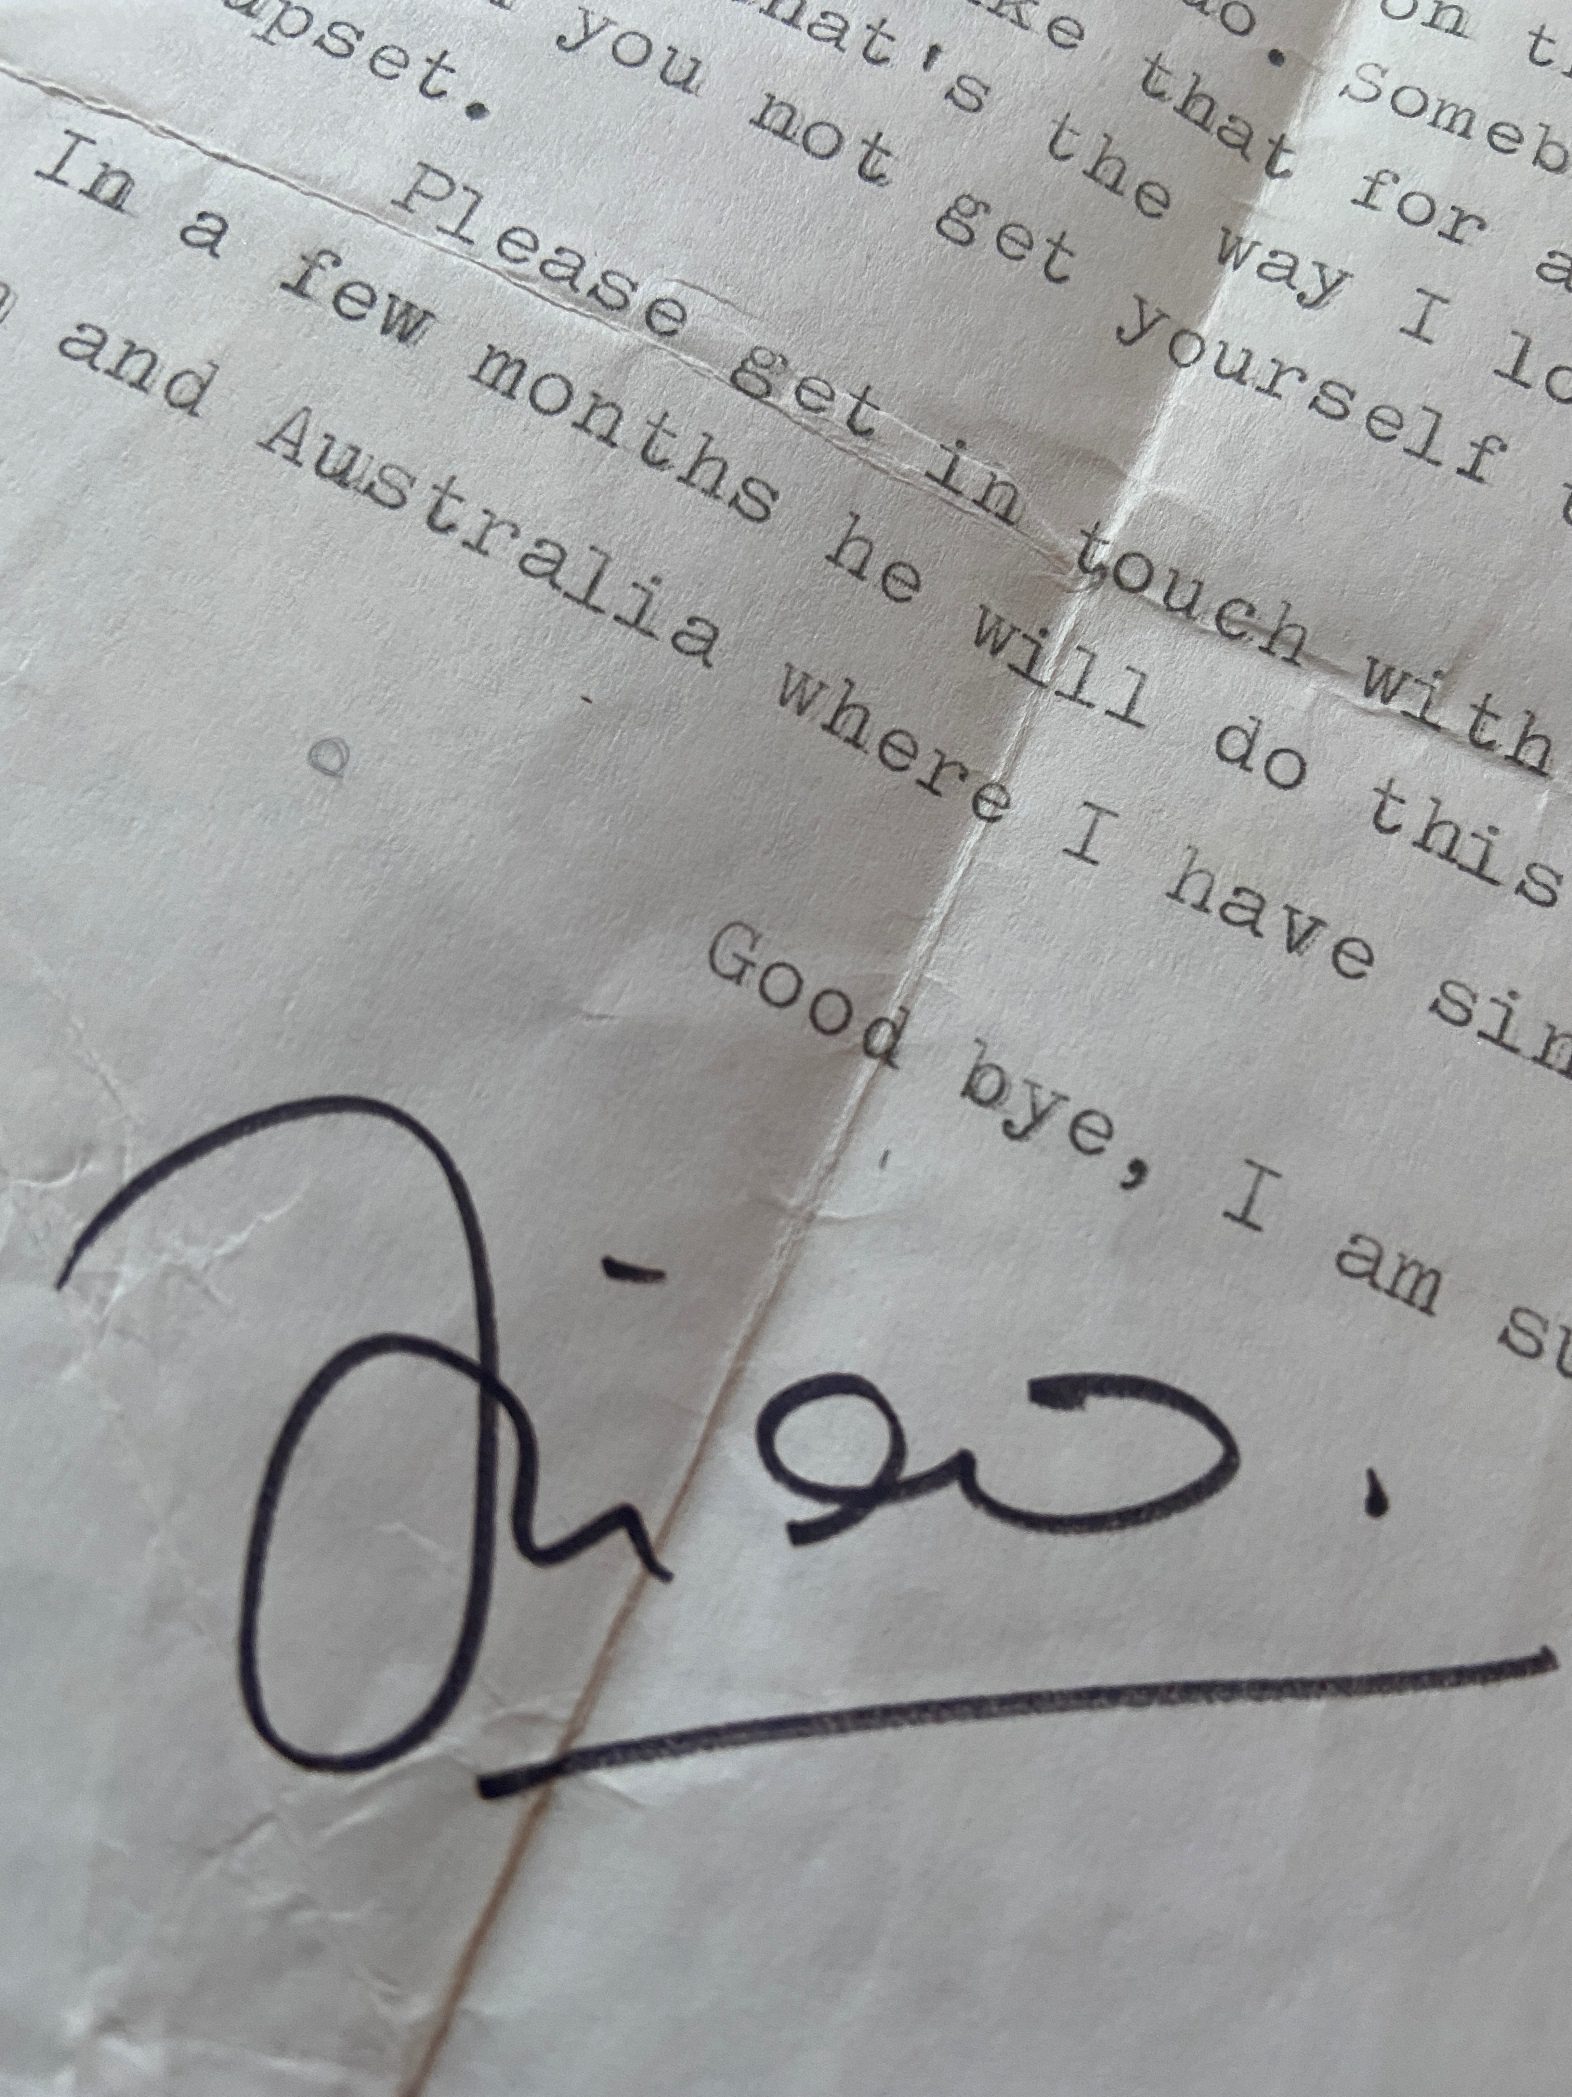 on t
do. Someb
ke that for a
hat's the way I lo
you not get yourself
upset.
Please get in touch with
In a few months he will do this
and Australia where I have sin
Good bye, I am su